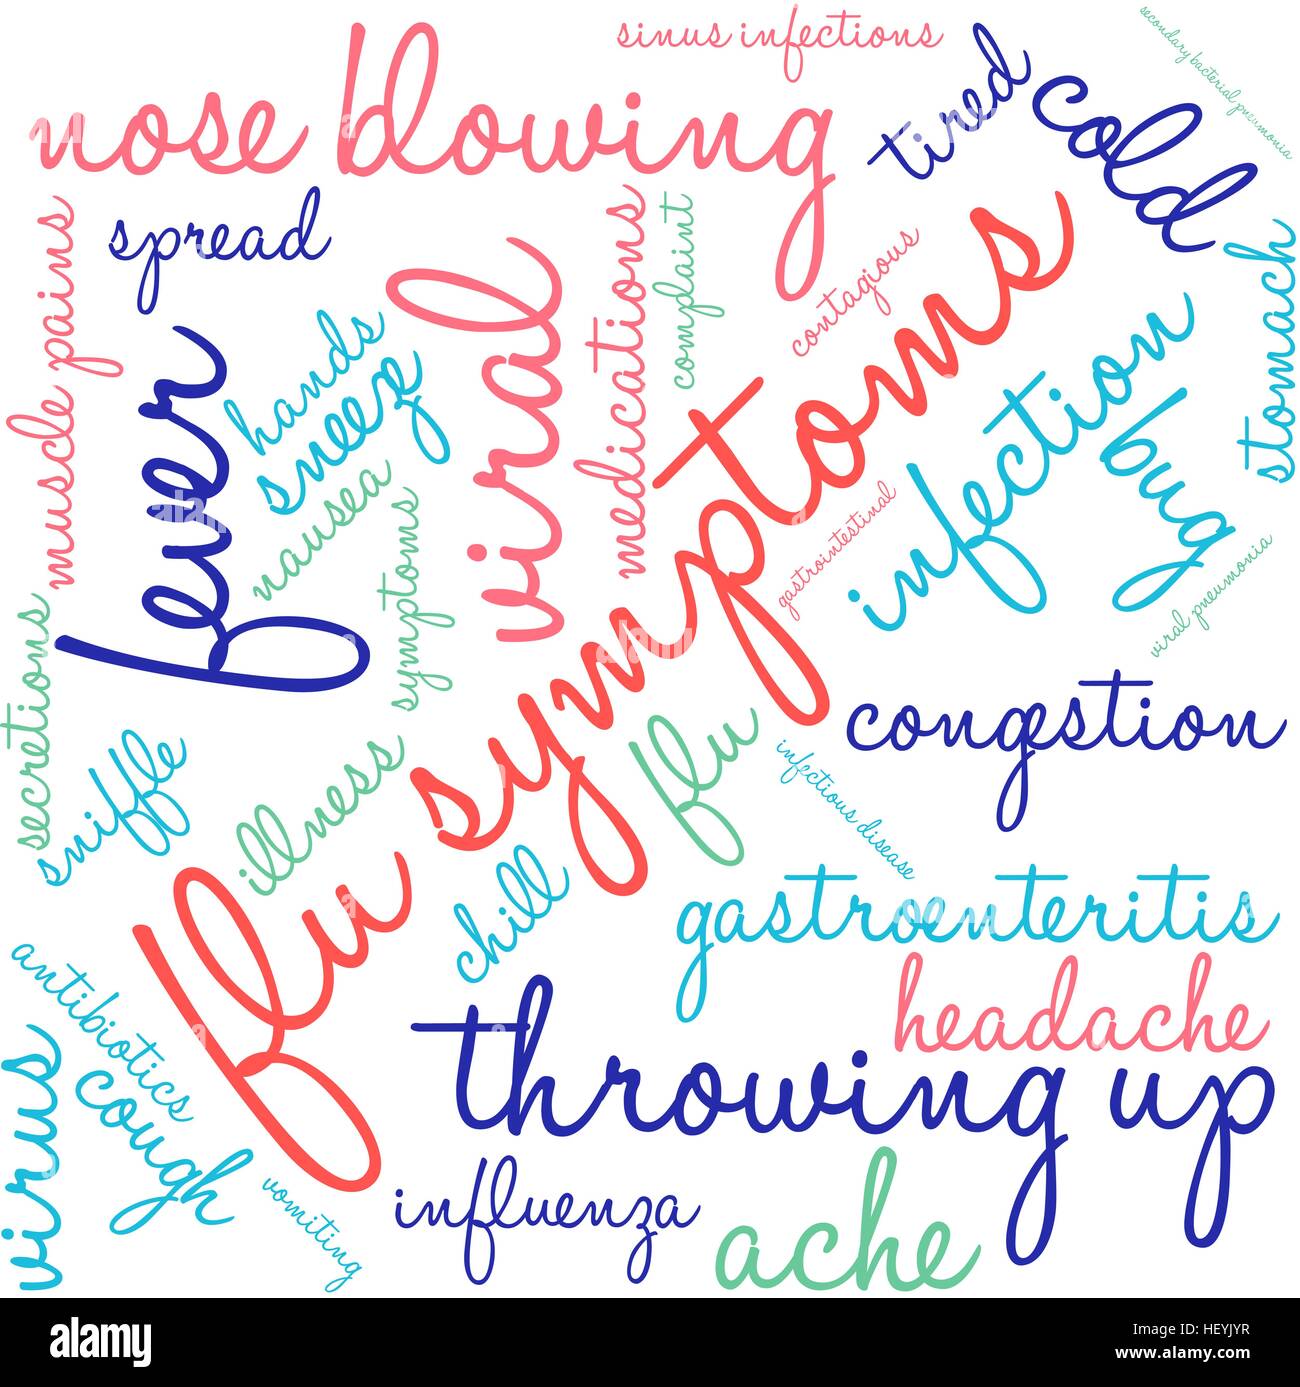 sinus infections
secondary bacterial pneumonia
nose blowing
tired
cold
spread
muscle pains
viral
medications
complaint
contagious
stomach
fever
hands
sneeze
nausea
symptoms
flu symptoms
infection
bug
gastrointestinal
viral pneumonia
secretions
sniffle
illness
flu
congestion
infectious disease
chill
gastroenteritis
antibiotics
headache
virus
cough
throwing up
vomiting
influenza
ache
alamy
Image ID: HEYJYR
www.alamy.com